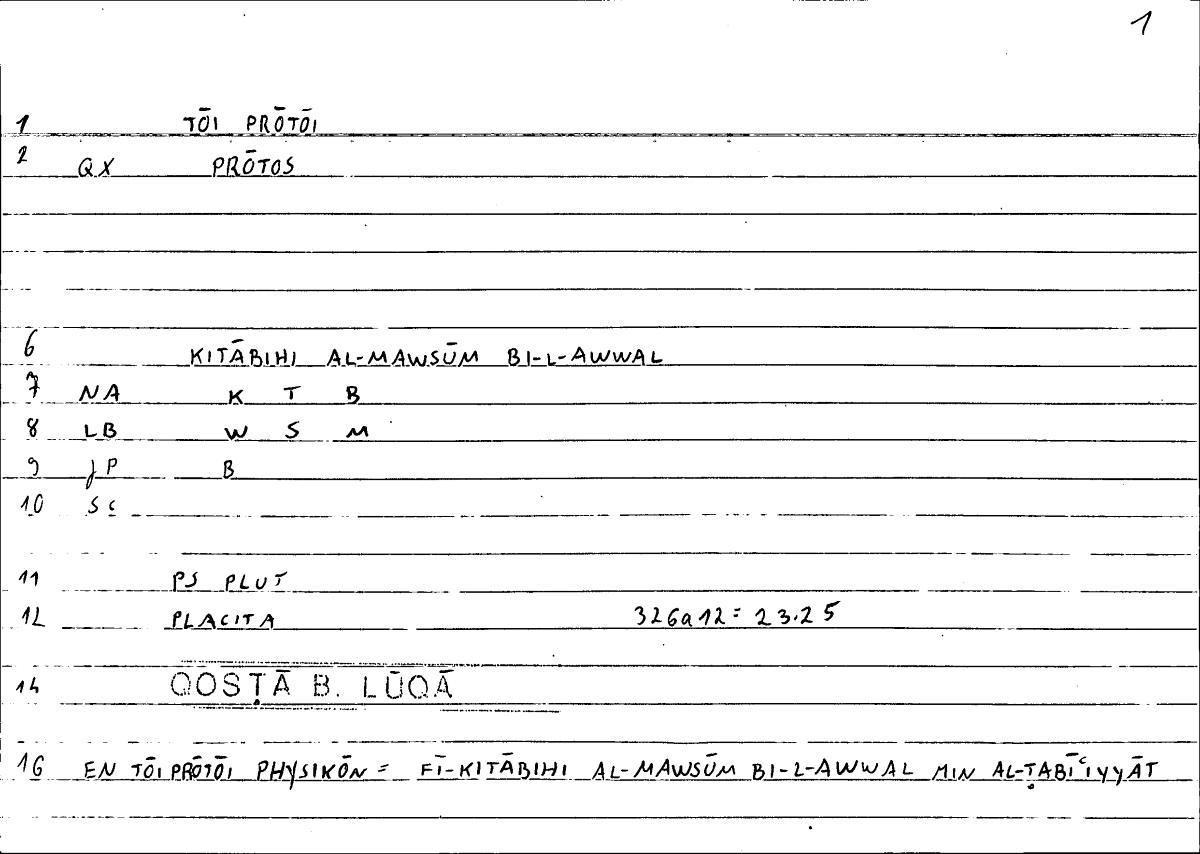 1
1 TŌI PRŌTŌI
2 QX PRŌTOS
6 KITĀBIHI AL-MAWSŪM BI-L-AWWAL
7 NA K T B
8 LB W S M
9 JP B
10 SC
11 PS PLUT
12 PLACITA 326a12 = 23.25
14 QOSṬĀ B. LŪQĀ
16 EN TŌI PRŌTŌI PHYSIKŌN = FĪ-KITĀBIHI AL-MAWSŪM BI-L-AWWAL MIN AL-ṬABĪʿIYYĀT